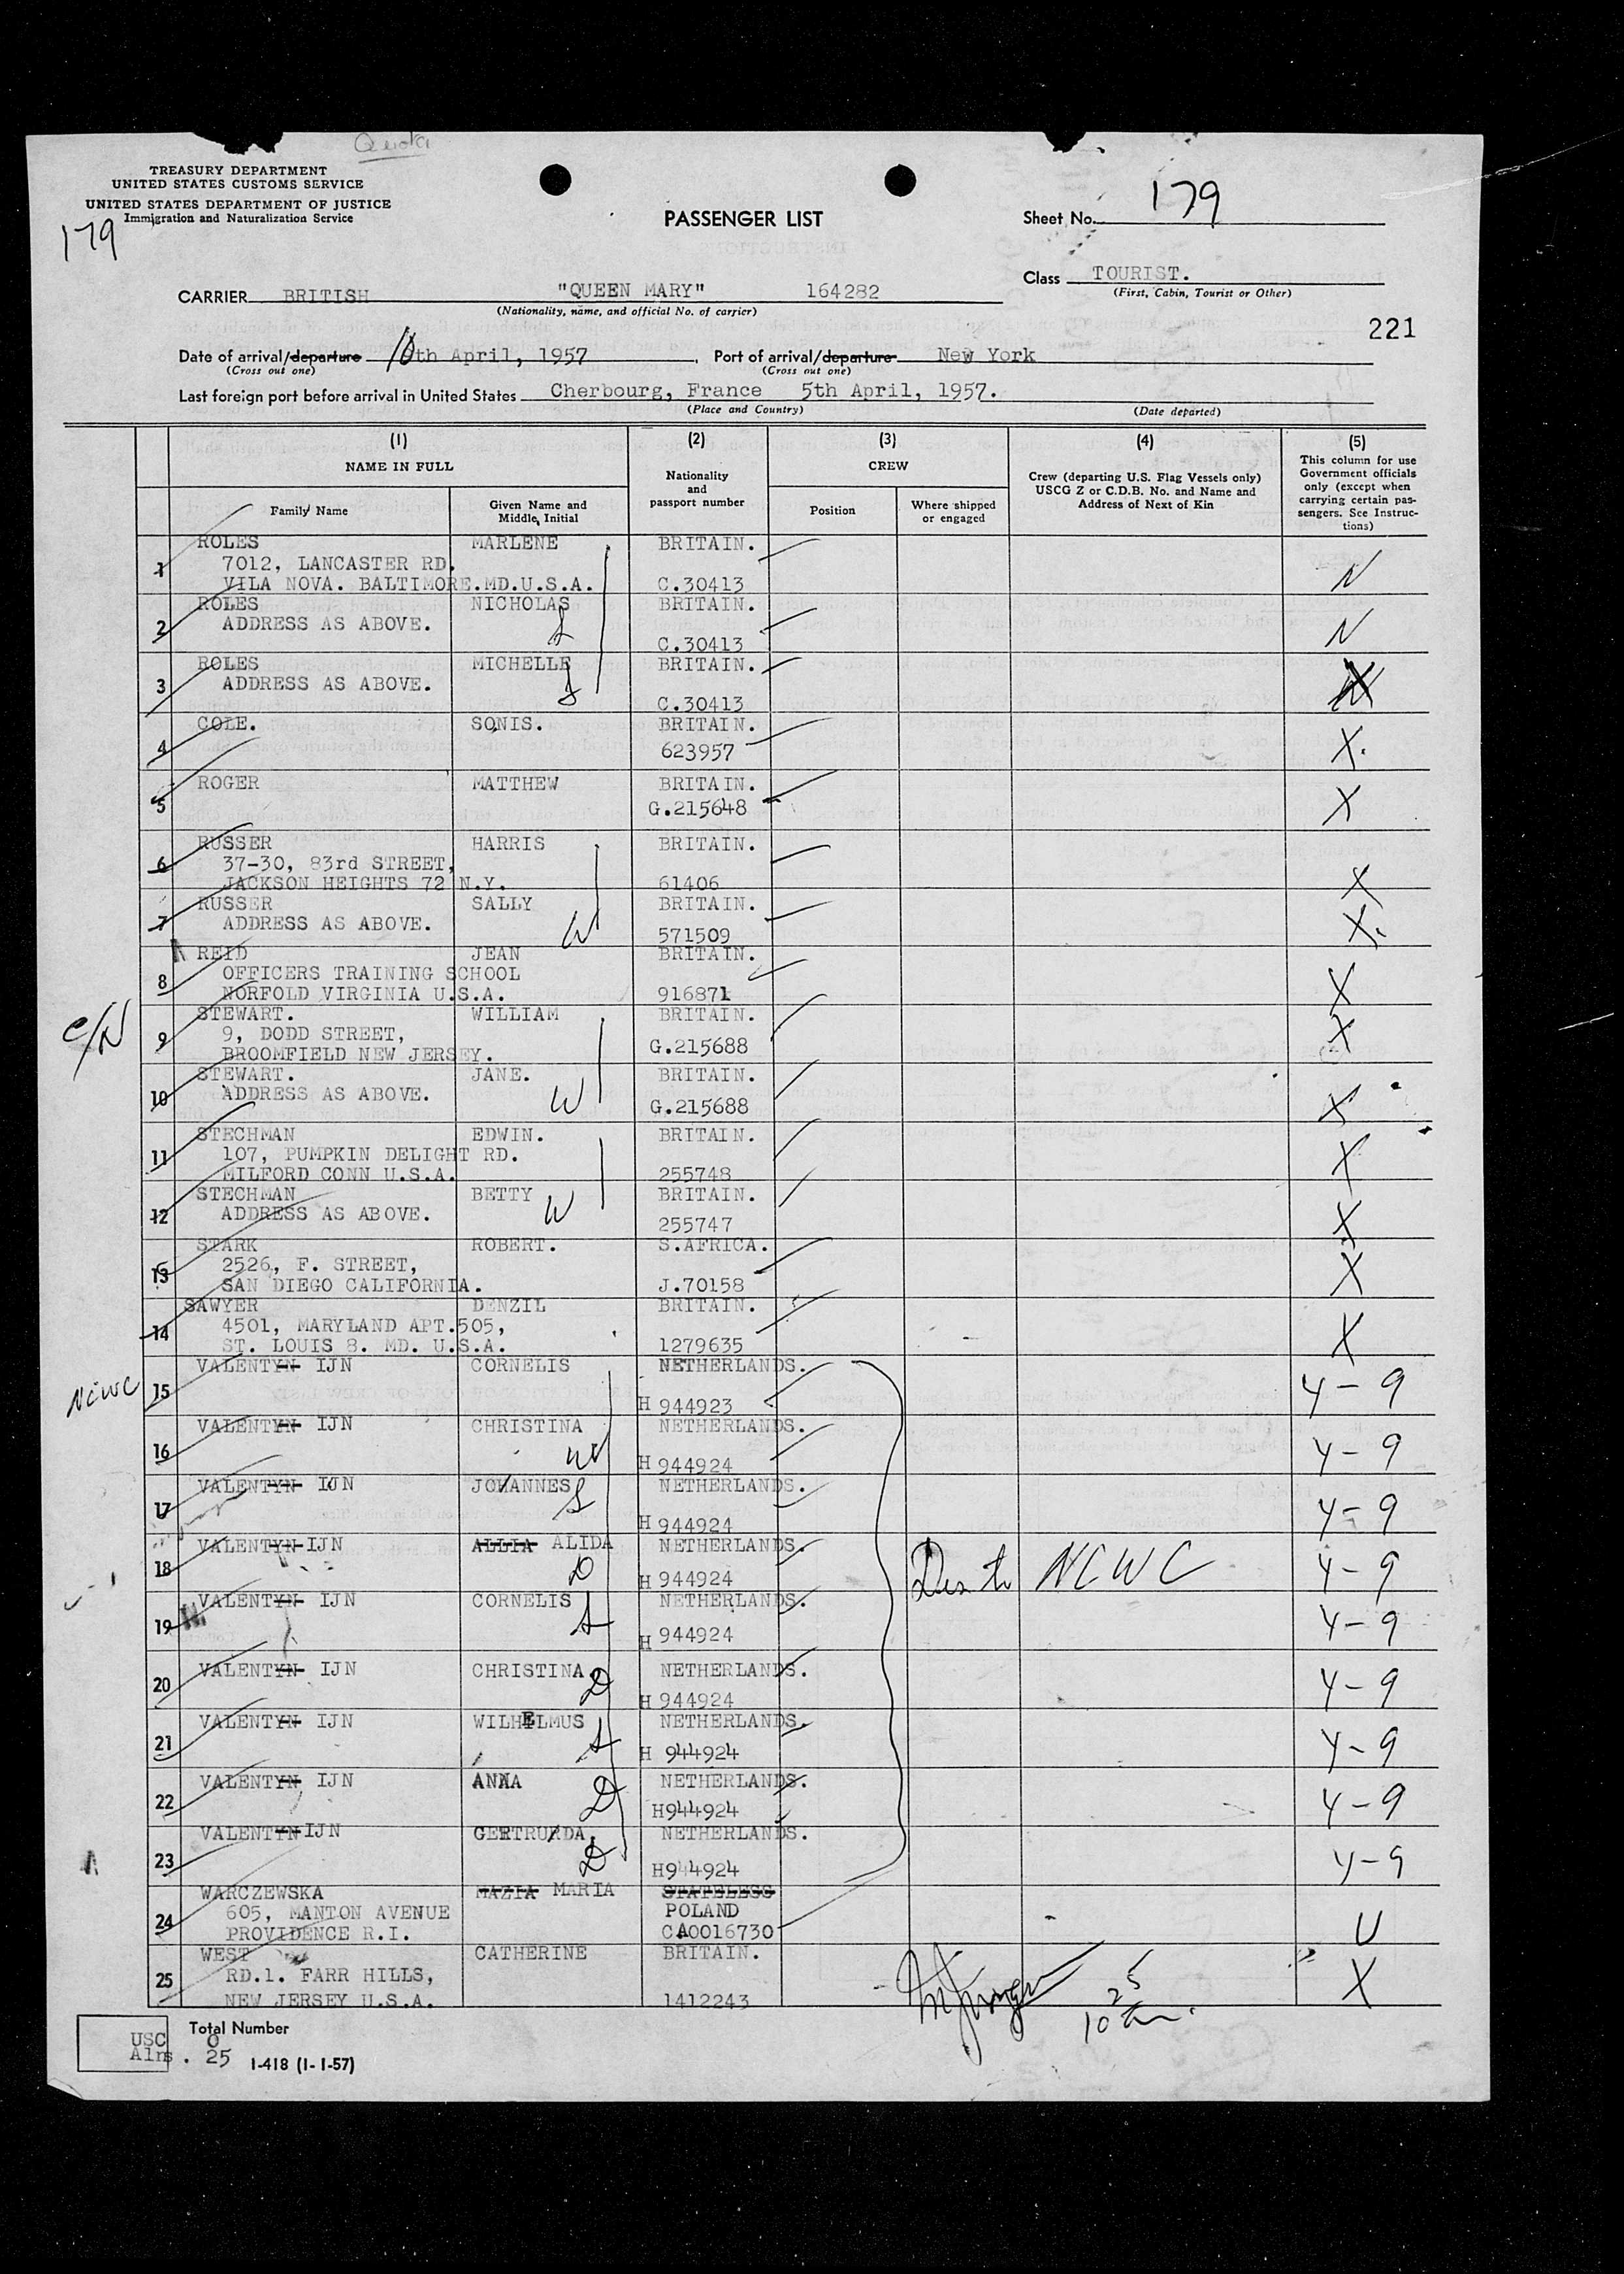 Quota
TREASURY DEPARTMENT
UNITED STATES CUSTOMS SERVICE
UNITED STATES DEPARTMENT OF JUSTICE
Immigration and Naturalization Service
179
PASSENGER LIST
Sheet No. 179
Class TOURIST.
(First, Cabin, Tourist or Other)
CARRIER BRITISH "QUEEN MARY" 164282
(Nationality, name, and official No. of carrier)
221
Date of arrival/departure 10th April, 1957 . Port of arrival/departure New York
(Cross out one) (Cross out one)
Last foreign port before arrival in United States Cherbourg, France 5th April, 1957.
(Place and Country) (Date departed)
(1) (2) (3) (4) (5)
NAME IN FULL
Nationality and passport number
CREW
Crew (departing U.S. Flag Vessels only)
USCG Z or C.D.B. No. and Name and
Address of Next of Kin
This column for use
Government officials
only (except when
carrying certain pas-
sengers. See Instruc-
tions)
Family Name Given Name and Middle Initial Position Where shipped or engaged
1 ROLES MARLENE BRITAIN.
7012, LANCASTER RD.
VILA NOVA. BALTIMORE.MD.U.S.A. C.30413 N
2 ROLES NICHOLAS BRITAIN.
ADDRESS AS ABOVE. S C.30413 N
3 ROLES MICHELLE BRITAIN.
ADDRESS AS ABOVE. C.30413
4 COLE. SONIS. BRITAIN.
623957 X.
5 ROGER MATTHEW BRITAIN.
G.215648 X
6 RUSSER HARRIS BRITAIN.
37-30, 83rd STREET,
JACKSON HEIGHTS 72 N.Y. 61406 X
7 RUSSER SALLY BRITAIN.
ADDRESS AS ABOVE. W 571509 X.
8 REID JEAN BRITAIN.
OFFICERS TRAINING SCHOOL
NORFOLD VIRGINIA U.S.A. 916871 X
C/N
9 STEWART. WILLIAM BRITAIN.
9, DODD STREET,
BROOMFIELD NEW JERSEY. G.215688 X
10 STEWART. JANE. BRITAIN.
ADDRESS AS ABOVE. W G.215688 X
11 STECHMAN EDWIN. BRITAIN.
107, PUMPKIN DELIGHT RD.
MILFORD CONN U.S.A. 255748 X
12 STECHMAN BETTY BRITAIN.
ADDRESS AS ABOVE. W 255747 X
13 STARK ROBERT. S.AFRICA.
2526, F. STREET,
SAN DIEGO CALIFORNIA. J.70158 X
14 SAWYER DENZIL BRITAIN.
4501, MARYLAND APT.505,
ST. LOUIS 8. MD. U.S.A. 1279635 X
NCWC
15 VALENTYN IJN CORNELIS NETHERLANDS.
H 944923 4-9
16 VALENTYN IJN CHRISTINA NETHERLANDS.
W H 944924 4-9
17 VALENTYN IJN JOHANNES NETHERLANDS.
S H 944924 4-9
18 VALENTYN IJN ALLIA ALIDA NETHERLANDS.
D H 944924 Des to NCWC 4-9
19 VALENTYN IJN CORNELIS NETHERLANDS.
S H 944924 4-9
20 VALENTYN IJN CHRISTINA NETHERLANDS.
D H 944924 4-9
21 VALENTYN IJN WILHELMUS NETHERLANDS.
S H 944924 4-9
22 VALENTYN IJN ANNA NETHERLANDS.
D H944924 4-9
23 VALENTYN IJN GERTRUDA. NETHERLANDS.
D H944924 4-9
24 WARCZEWSKA MAZIA MARIA STATELESS
605, MANTON AVENUE POLAND
PROVIDENCE R.I. CA0016730 U
25 WEST CATHERINE BRITAIN.
RD.1. FARR HILLS,
NEW JERSEY U.S.A. 1412243 X
25
10
Total Number
USC 0
Alns. 25
I-418 (1-1-57)